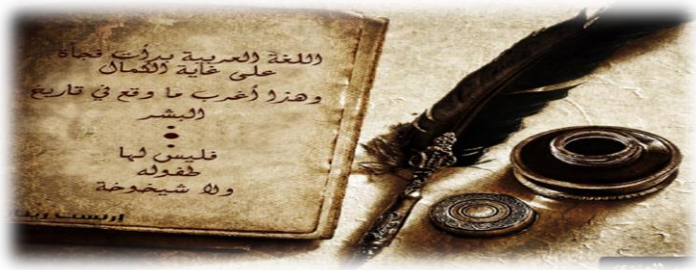 اللغة العربية بدأت فجأة
على غاية الكمال
وهذا أغرب ما وقع في تاريخ
البشر
فليس لها
طفوله
ولا شيخوخة
ارنست رينان